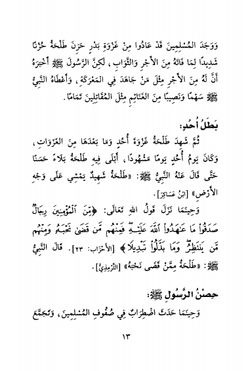 وَوَجَدَ الْمُسْلِمِينَ قَدْ عَادُوا مِنْ غَزْوَةِ بَدْرٍ حَزِنَ طَلْحَةُ حُزْنًا
شَدِيدًا لِمَا فَاتَهُ مِنَ الْأَجْرِ وَالثَّوَابِ، لَكِنَّ الرَّسُولَ ﷺ أَخْبَرَهُ
أَنَّ لَهُ مِنَ الْأَجْرِ مِثْلَ مَنْ جَاهَدَ فِي الْمَعْرَكَةِ، وَأَعْطَاهُ النَّبِيُّ
ﷺ سَهْمًا وَنَصِيبًا مِنَ الْغَنَائِمِ مِثْلَ الْمُقَاتِلِينَ تَمَامًا.
بَطَلُ أُحُدٍ:
ثُمَّ شَهِدَ طَلْحَةُ غَزْوَةَ أُحُدٍ وَمَا بَعْدَهَا مِنَ الْغَزَوَاتِ،
وَكَانَ يَوْمُ أُحُدٍ يَوْمًا مَشْهُودًا، أَبْلَى فِيهِ طَلْحَةُ بَلَاءً حَسَنًا
حَتَّى قَالَ عَنْهُ النَّبِيُّ ﷺ: «طَلْحَةُ شَهِيدٌ يَمْشِي عَلَى وَجْهِ
الْأَرْضِ» [ابْنُ عَسَاكِرَ].
وَحِينَمَا نَزَلَ قَوْلُ اللهِ تَعَالَى: ﴿مِّنَ الْمُؤْمِنِينَ رِجَالٌ
صَدَقُوا مَا عَاهَدُوا اللَّهَ عَلَيْهِ فَمِنْهُم مَّن قَضَى نَحْبَهُ وَمِنْهُم
مَّن يَنتَظِرُ وَمَا بَدَّلُوا تَبْدِيلًا﴾ [الْأَحْزَاب: ٢٣]. قَالَ النَّبِيُّ
ﷺ: «طَلْحَةُ مِمَّنْ قَضَى نَحْبَهُ» [التِّرْمِذِيُّ].
حِصْنُ الرَّسُولِ ﷺ:
وَحِينَمَا حَدَثَ اضْطِرَابٌ فِي صُفُوفِ الْمُسْلِمِينَ، وَتَجَمَّعَ
١٣